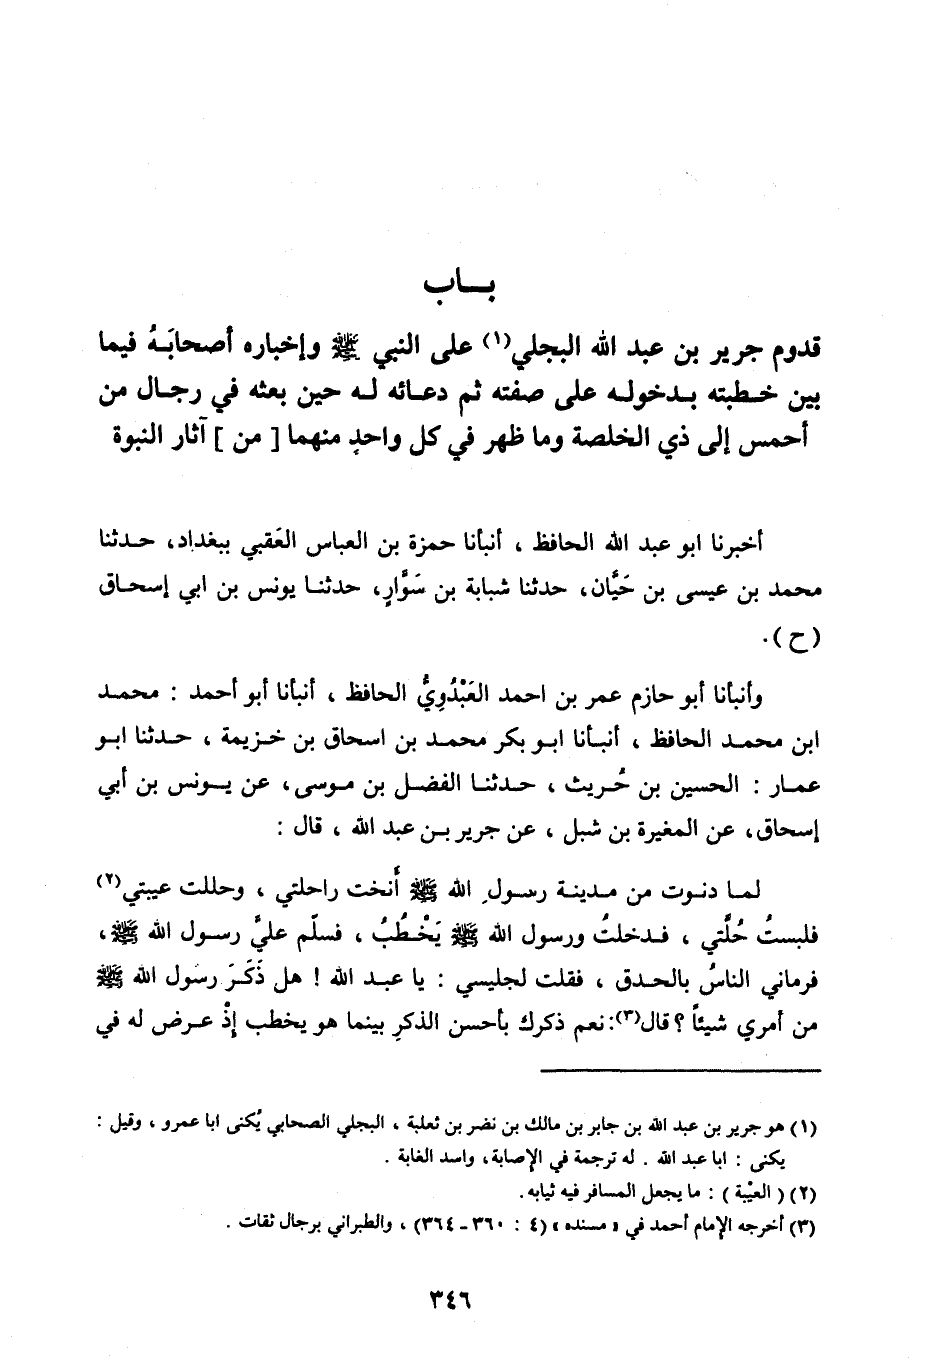 بـــاب
قدوم جرير بن عبد الله البجلي(١) على النبي ﷺ وإخباره أصحابَهُ فيما
بين خطبته بدخوله على صفته ثم دعائه له حين بعثه في رجال من
أحمس إلى ذي الخلصة وما ظهر في كل واحدٍ منهما [ من ] آثار النبوة
أخبرنا ابو عبد الله الحافظ ، أنبأنا حمزة بن العباس العَقبي ببغداد، حدثنا
محمد بن عيسى بن حَيَّان، حدثنا شبابة بن سَوَّارٍ، حدثنا يونس بن ابي إسحاق
(ح).
وأنبأنا أبو حازم عمر بن احمد العَبْدُوِيُّ الحافظ ، أنبأنا أبو أحمد : محمد
ابن محمد الحافظ ، أنبأنا ابو بكر محمد بن اسحاق بن خزيمة ، حدثنا ابو
عمار : الحسين بن حُريث ، حدثنا الفضل بن موسى، عن يونس بن أبي
إسحاق، عن المغيرة بن شبل ، عن جرير بن عبد الله ، قال :
لما دنوت من مدينة رسولِ الله ﷺ أَنخت راحلتي ، وحللت عيبتي(٢)
فلبستُ حُلَّتي ، فدخلتُ ورسول الله ﷺ يَخْطُبُ ، فسلّم عليَّ رسول الله ﷺ،
فرماني الناسُ بالحدق ، فقلت لجليسي : يا عبد الله ! هل ذَكَرَ رسول الله ﷺ
من أمري شيئاً ؟ قال(٣): نعم ذكرك بأحسن الذكرِ بينما هو يخطب إذْ عرض له في
(١) هو جرير بن عبد الله بن جابر بن مالك بن نضر بن ثعلبة ، البجلي الصحابي يُكنى ابا عمرو ، وقيل :
يكنى : ابا عبد الله . له ترجمة في الإصابة، واسد الغابة .
(٢) ( العيْبة ) : ما يجعل المسافر فيه ثيابه.
(٣) أخرجه الإمام أحمد في « مسنده » (٤ : ٣٦٠ - ٣٦٤) ، والطبراني برجال ثقات .
٣٤٦